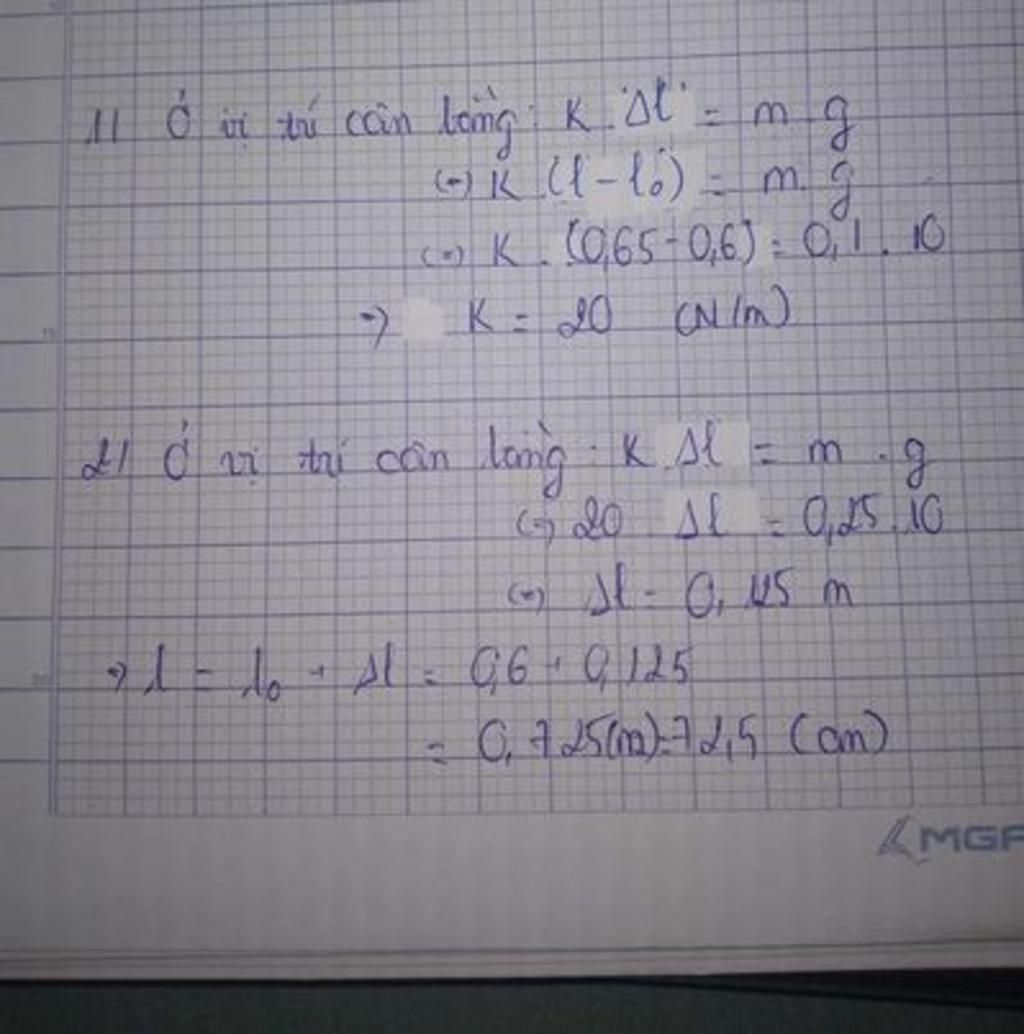 1/ Ở vị trí cân bằng: K. Δl = m g
(=) K. (l - l₀) = m. g
(=) K. (0,65-0,6) = 0,1. 10
=) K = 20 (N/m)
2/ Ở vị trí cân bằng: K Δl = m. g
(=) 20 Δl = 0,25.10
(=) Δl = 0,125 m
=) l = l₀ + Δl = 0,6 + 0,125
= 0,725(m)=72,5 (cm)